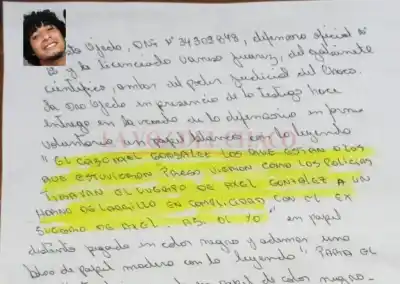 Ojedo, DNI Nº 34303848, defensora oficial Nº
y la licenciada Vanina Juarez, del gabinete
cientifico, ambas del poder Judicial del Chaco.
la Dra Ojeda en presencia de la testigo hace
entrega en la vereda de la defensoria en forma
voluntaria un papel blanco con la leyenda
"EL CASO AXEL GONSALEZ LOS QUE ESTAN O LOS
QUE ESTUVIERON PRESO VIERON COMO LOS POLICIAS
TIRAVAN EL CUERPO DE AXEL GONZALEZ A UN
HORNO DE LADRILLO EN COMPLICIDAD CON EL EX
SUEGRO DE AXEL. AS. EL YO" en papel
distinto pegado en color negro y ademas uno
bloc de papel madera con la leyendo "PARA EL
papel de color negro